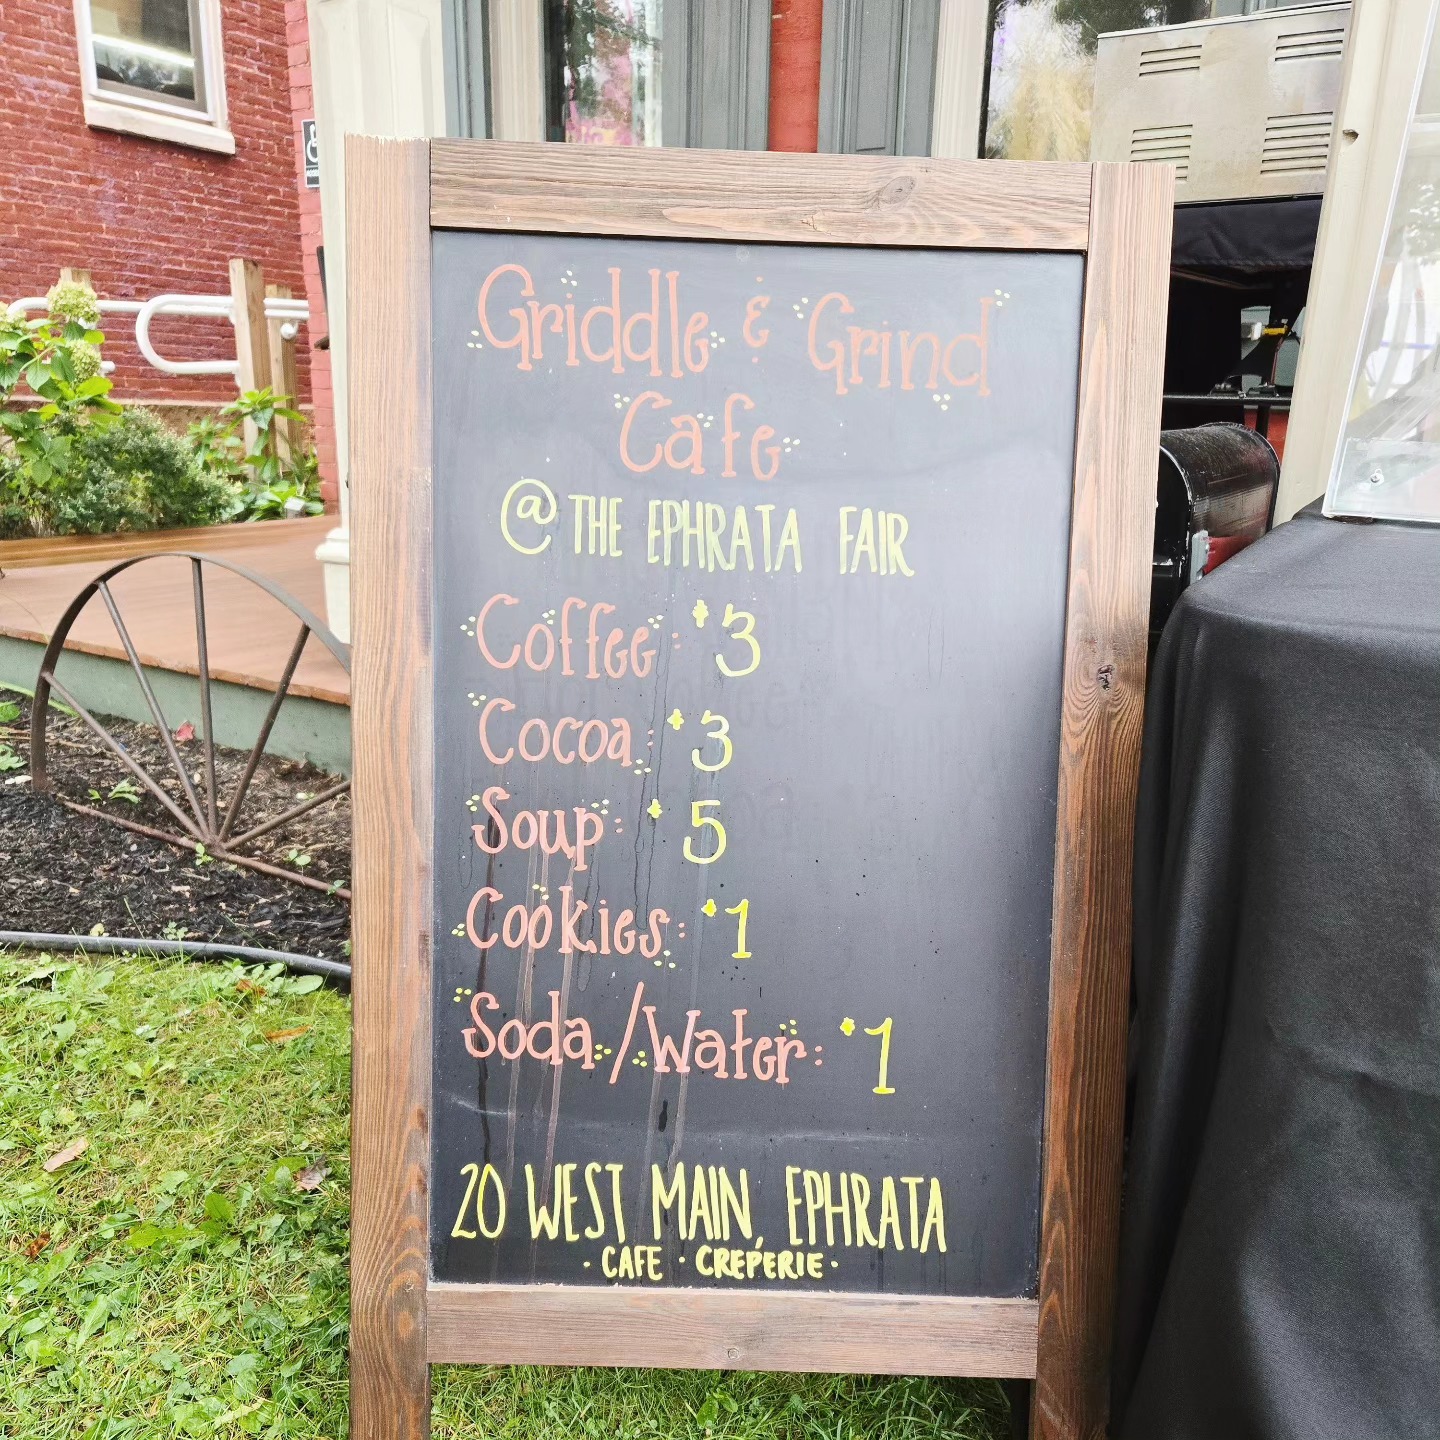 Griddle & Grind
Cafe
@ THE EPHRATA FAIR
Coffee: $3
Cocoa: $3
Soup: $5
Cookies: $1
Soda/Water: $1
20 WEST MAIN, EPHRATA
· CAFE · CREPERIE ·